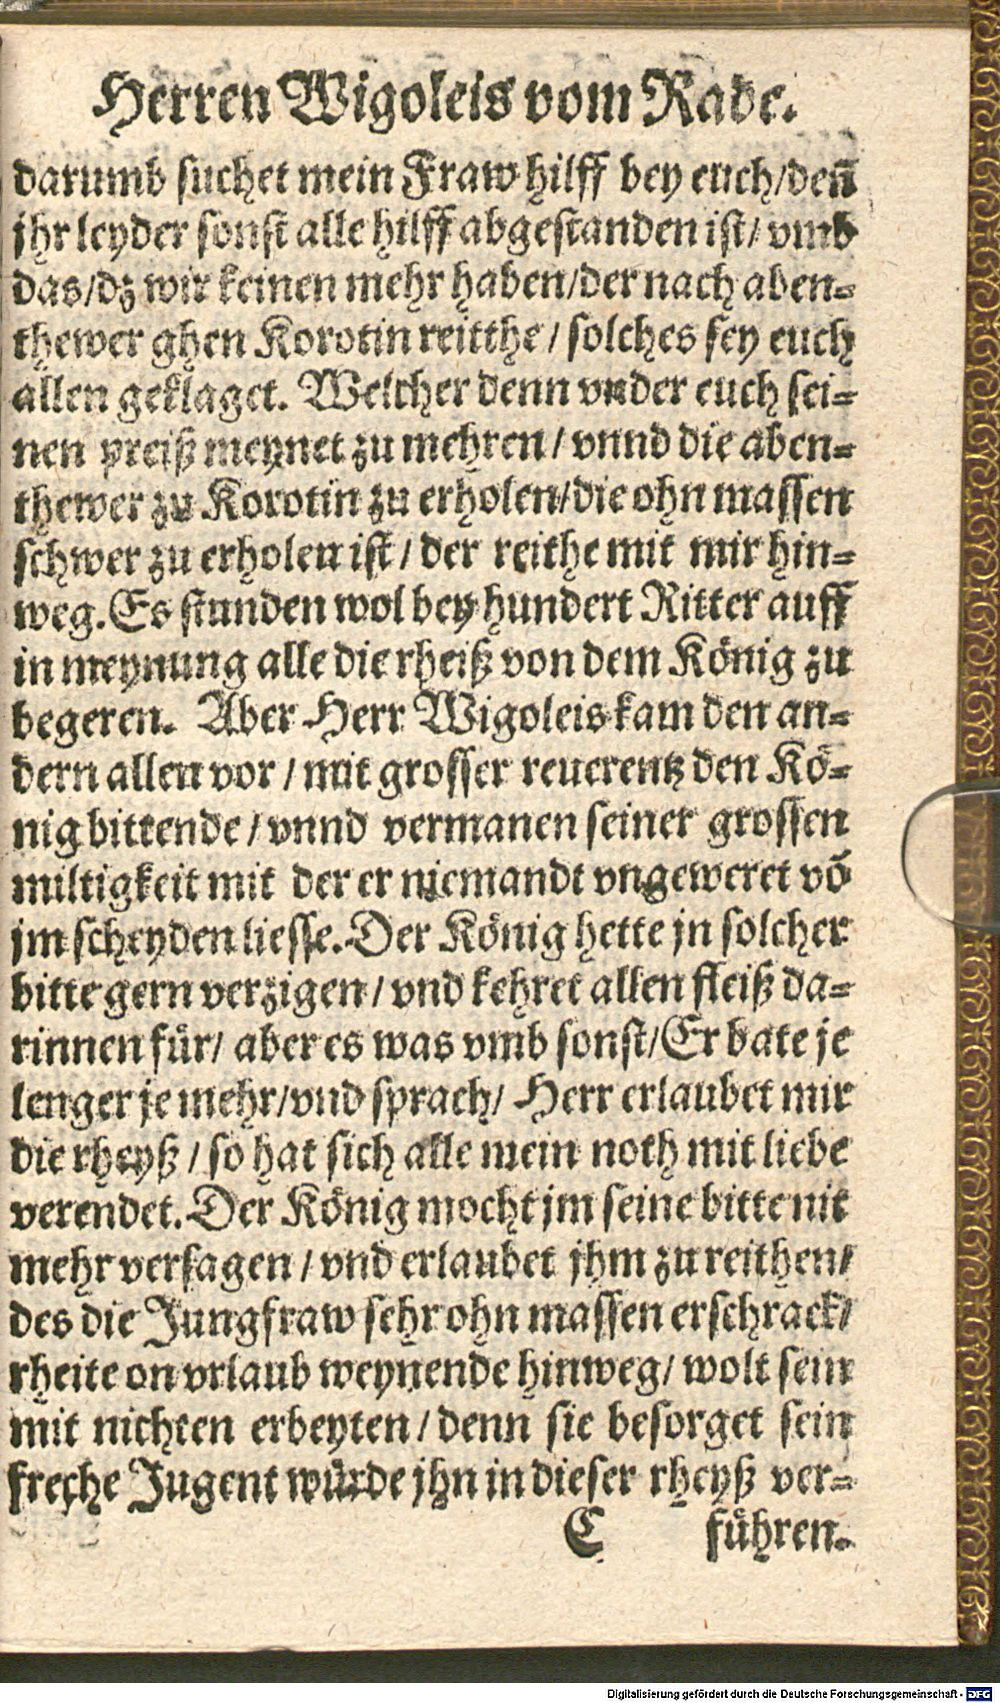 Herren Wigoleis vom Rade.
darumb suchet mein Fraw hilff bey euch/deñ
jhr leyder sonst alle hilff abgestanden ist/ vmb
das/dz wir keinen mehr haben/der nach aben-
thewer ghen Korotin reitthe / solches sey euch
allen geklaget. Welcher denn vnder euch sei-
nen preiß meynet zu mehren / vnnd die aben-
thewer zu Korotin zu erholen/die ohn massen
schwer zu erholen ist / der reithe mit mir hin-
weg. Es stunden wol bey hundert Ritter auff
in meynung alle die rheiß von dem König zu
begeren. Aber Herr Wigoleis kam den an-
dern allen vor / mit grosser reuerentz den Kö-
nig bittende / vnnd vermanen seiner grossen
miltigkeit mit der er niemandt vngeweret võ
jm scheyden liesse. Der König hette jn solcher
bitte gern verzigen / vnd kehret allen fleiß da-
rinnen für/ aber es was vmb sonst/Er bate je
lenger je mehr/vnd sprach/ Herr erlaubet mir
die rheyß / so hat sich alle mein noth mit liebe
verendet. Der König mocht jm seine bitte nit
mehr versagen / vnd erlaubet jhm zu reithen/
des die Jungfraw sehr ohn massen erschrack/
rheite on vrlaub weynende hinweg/ wolt sein
mit nichten erbeyten / denn sie besorget sein
freche Jugent würde jhn in dieser rheyß ver-
C führen.
Digitalisierung gefördert durch die Deutsche Forschungsgemeinschaft - DFG